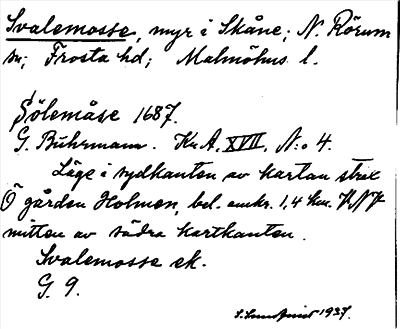 Svalemosse, myr i Skåne; N. Rörum
sn; Frosta hd; Malmöhus l.
Sölemåse 1687.
G. Buhrmann. Kr.A. XVII, N:o 4.
Läge i sydkanten av kartan strax
Ö gården Holmen, bel. omkr. 1,4 km. VNV
mitten av södra kartkanten.
Svalemosse ek.
G. 9.
1937.